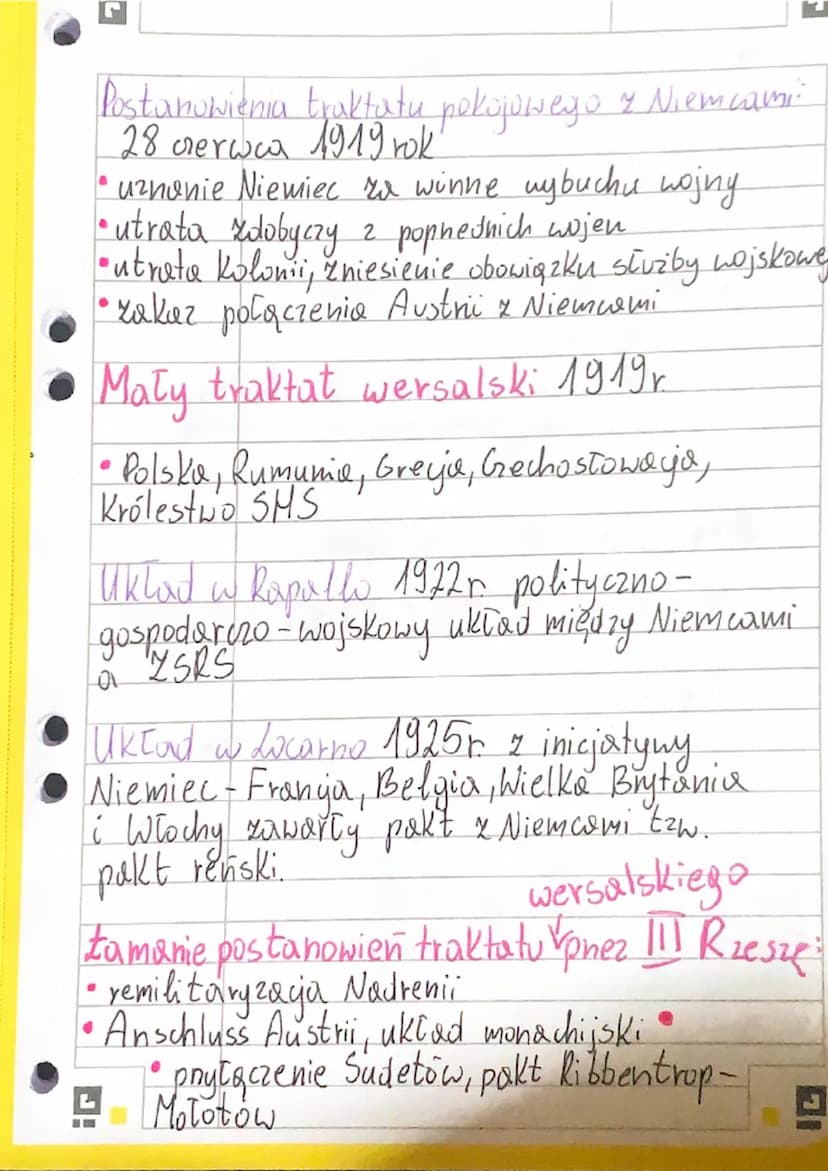 Postanowienia traktatu pokojowego z Niemcami:
28 czerwca 1919 rok
• uznanie Niemiec za winne wybuchu wojny
• utrata zdobyczy z poprzednich wojen
• utrata kolonii, zniesienie obowiązku służby wojskowej
• zakaz połączenia Austrii z Niemcami
Mały traktat wersalski 1919r
• Polska, Rumunia, Grecja, Czechosłowacja,
Królestwo SHS
Układ w Rapallo 1922r. polityczno-
gospodarczo-wojskowy układ między Niemcami
a ZSRS
Układ w Locarno 1925r. z inicjatywy
Niemiec - Francja, Belgia, Wielka Brytania
i Włochy zawarły pakt z Niemcami tzw.
pakt reński.
wersalskiego
Łamanie postanowień traktatu przez III Rzeszę:
• remilitaryzacja Nadrenii
• Anschluss Austrii, układ monachijski •
• przyłączenie Sudetów, pakt Ribbentrop-
Mołotow